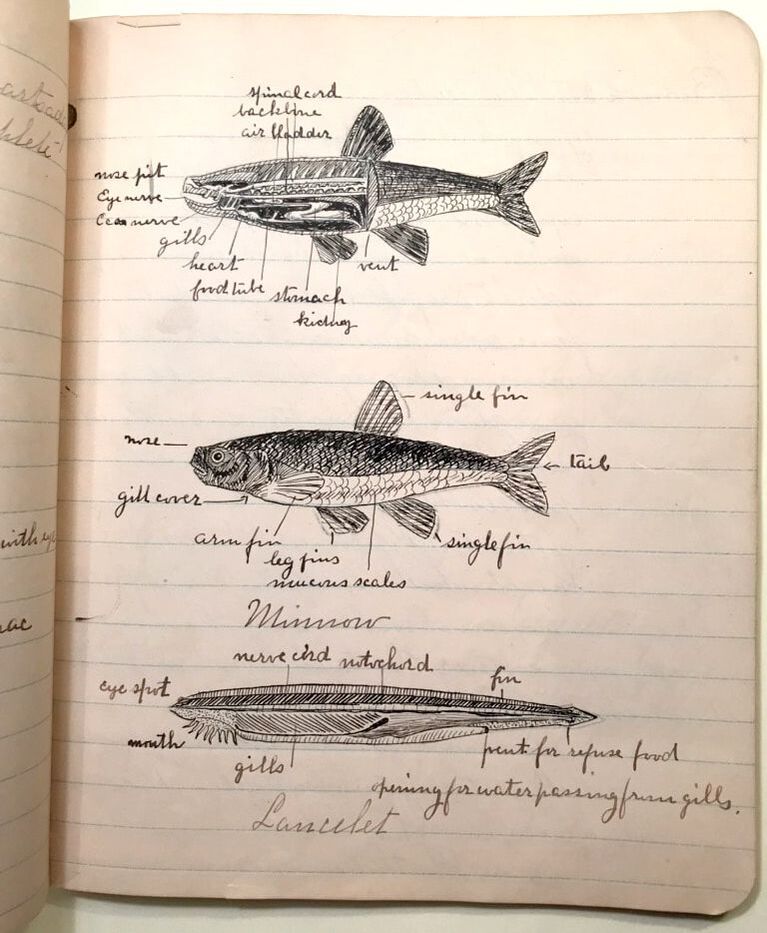 spinal cord
backbone
air bladder
nose pit
Eye nerve
nerve
gills
heart
food tube
stomach
kidney
vent
single fin
nose
tail
gill cover
arm fin
leg fins
single fin
mucous scales
Minnow
nerve cord notochord
fin
eye spot
mouth
gills
vent for refuse food
opening for water passing from gills.
Lancelet
with